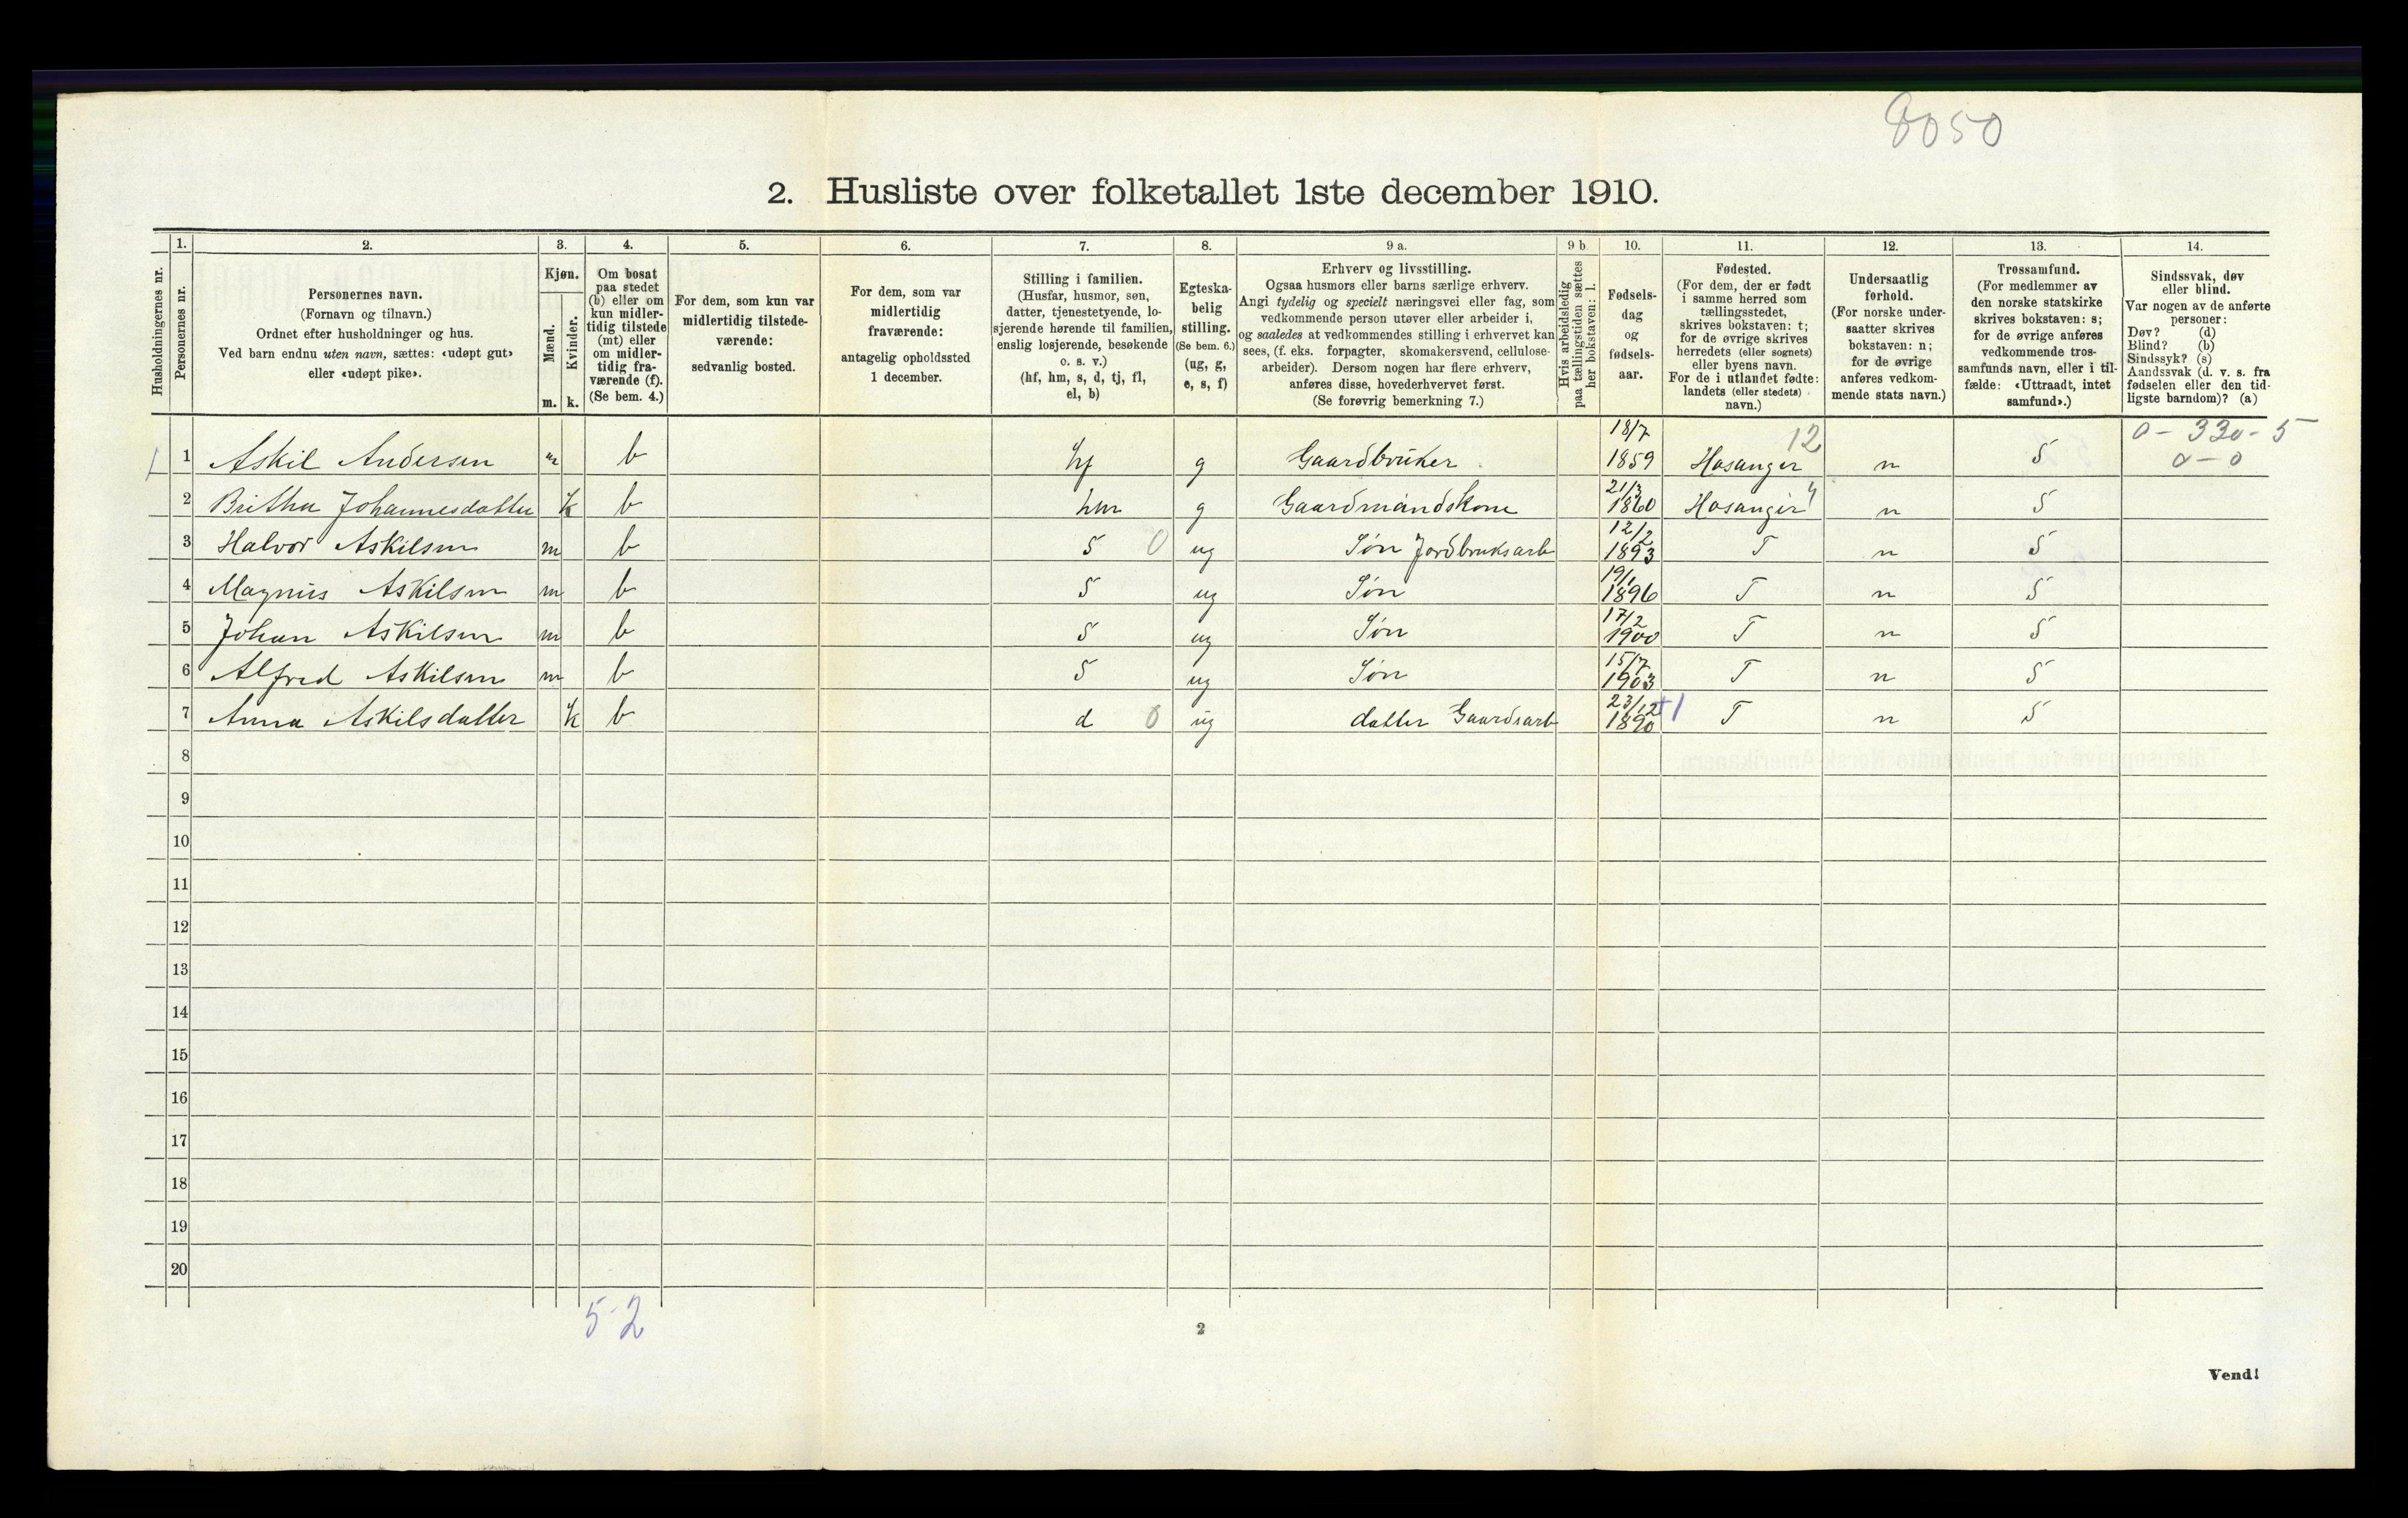 8050
2. Husliste over folketallet 1ste december 1910.
Husholdningernes nr.
1. Personernes nr.
2. Personernes navn. (Fornavn og tilnavn.) Ordnet efter husholdninger og hus. Ved barn endnu uten navn, sættes: «udøpt gut» eller «udøpt pike».
3. Kjøn. Mænd. m. Kvinder. k.
4. Om bosat paa stedet (b) eller om kun midlertidig tilstede (mt) eller om midlertidig fraværende (f). (Se bem. 4.)
5. For dem, som kun var midlertidig tilstedeværende: sedvanlig bosted.
6. For dem, som var midlertidig fraværende: antagelig opholdssted 1 december.
7. Stilling i familien. (Husfar, husmor, søn, datter, tjenestetyende, losjerende hørende til familien, enslig losjerende, besøkende o. s. v.) (hf, hm, s, d, tj, fl, el, b)
8. Egteskabelig stilling. (Se bem. 6.) (ug, g, e, s, f)
9 a. Erhverv og livsstilling. Ogsaa husmors eller barns særlige erhverv. Angi tydelig og specielt næringsvei eller fag, som vedkommende person utøver eller arbeider i, og saaledes at vedkommendes stilling i erhvervet kan sees, (f. eks. forpagter, skomakersvend, cellulosearbeider). Dersom nogen har flere erhverv, anføres disse, hovederhvervet først. (Se forøvrig bemerkning 7.)
9 b Hvis arbeidsledig paa tællingstiden sættes her bokstaven: l.
10. Fødselsdag og fødselsaar.
11. Fødested. (For dem, der er født i samme herred som tællingsstedet, skrives bokstaven: t; for de øvrige skrives herredets (eller sognets) eller byens navn. For de i utlandet fødte: landets (eller stedets) navn.)
12. Undersaatlig forhold. (For norske undersaatter skrives bokstaven: n; for de øvrige anføres vedkommende stats navn.)
13. Trossamfund. (For medlemmer av den norske statskirke skrives bokstaven: s; for de øvrige anføres vedkommende trossamfunds navn, eller i tilfælde: «Uttraadt, intet samfund».)
14. Sindssvak, døv eller blind. Var nogen av de anførte personer: Døv? (d) Blind? (b) Sindssyk? (s) Aandssvak (d. v. s. fra fødselen eller den tidligste barndom)? (a)
1 1 Askil Andersen m b hf g Gaardbruker 18/7 1859 Hosanger 12 n S 0 - 330 - 5 0 - 0
2 Britha Johannesdatter k b hm g Gaardmandskone 21/3 1860 Hosanger n S
3 Halvor Askilsen m b S 0 ug Søn Jordbruksarb 12/2 1893 T n S
4 Magnus Askilsen m b S ug Søn 19/1 1896 T n S
5 Johan Askilsen m b S ug Søn 17/2 1900 T n S
6 Alfred Askilsen m b S ug Søn 15/7 1903 T n S
7 Anna Askilsdatter k b d 0 ug datter Gaardsarb 23/12 1890 +1 T n S
8
9
10
11
12
13
14
15
16
17
18
19
20
5-2
2
Vend!